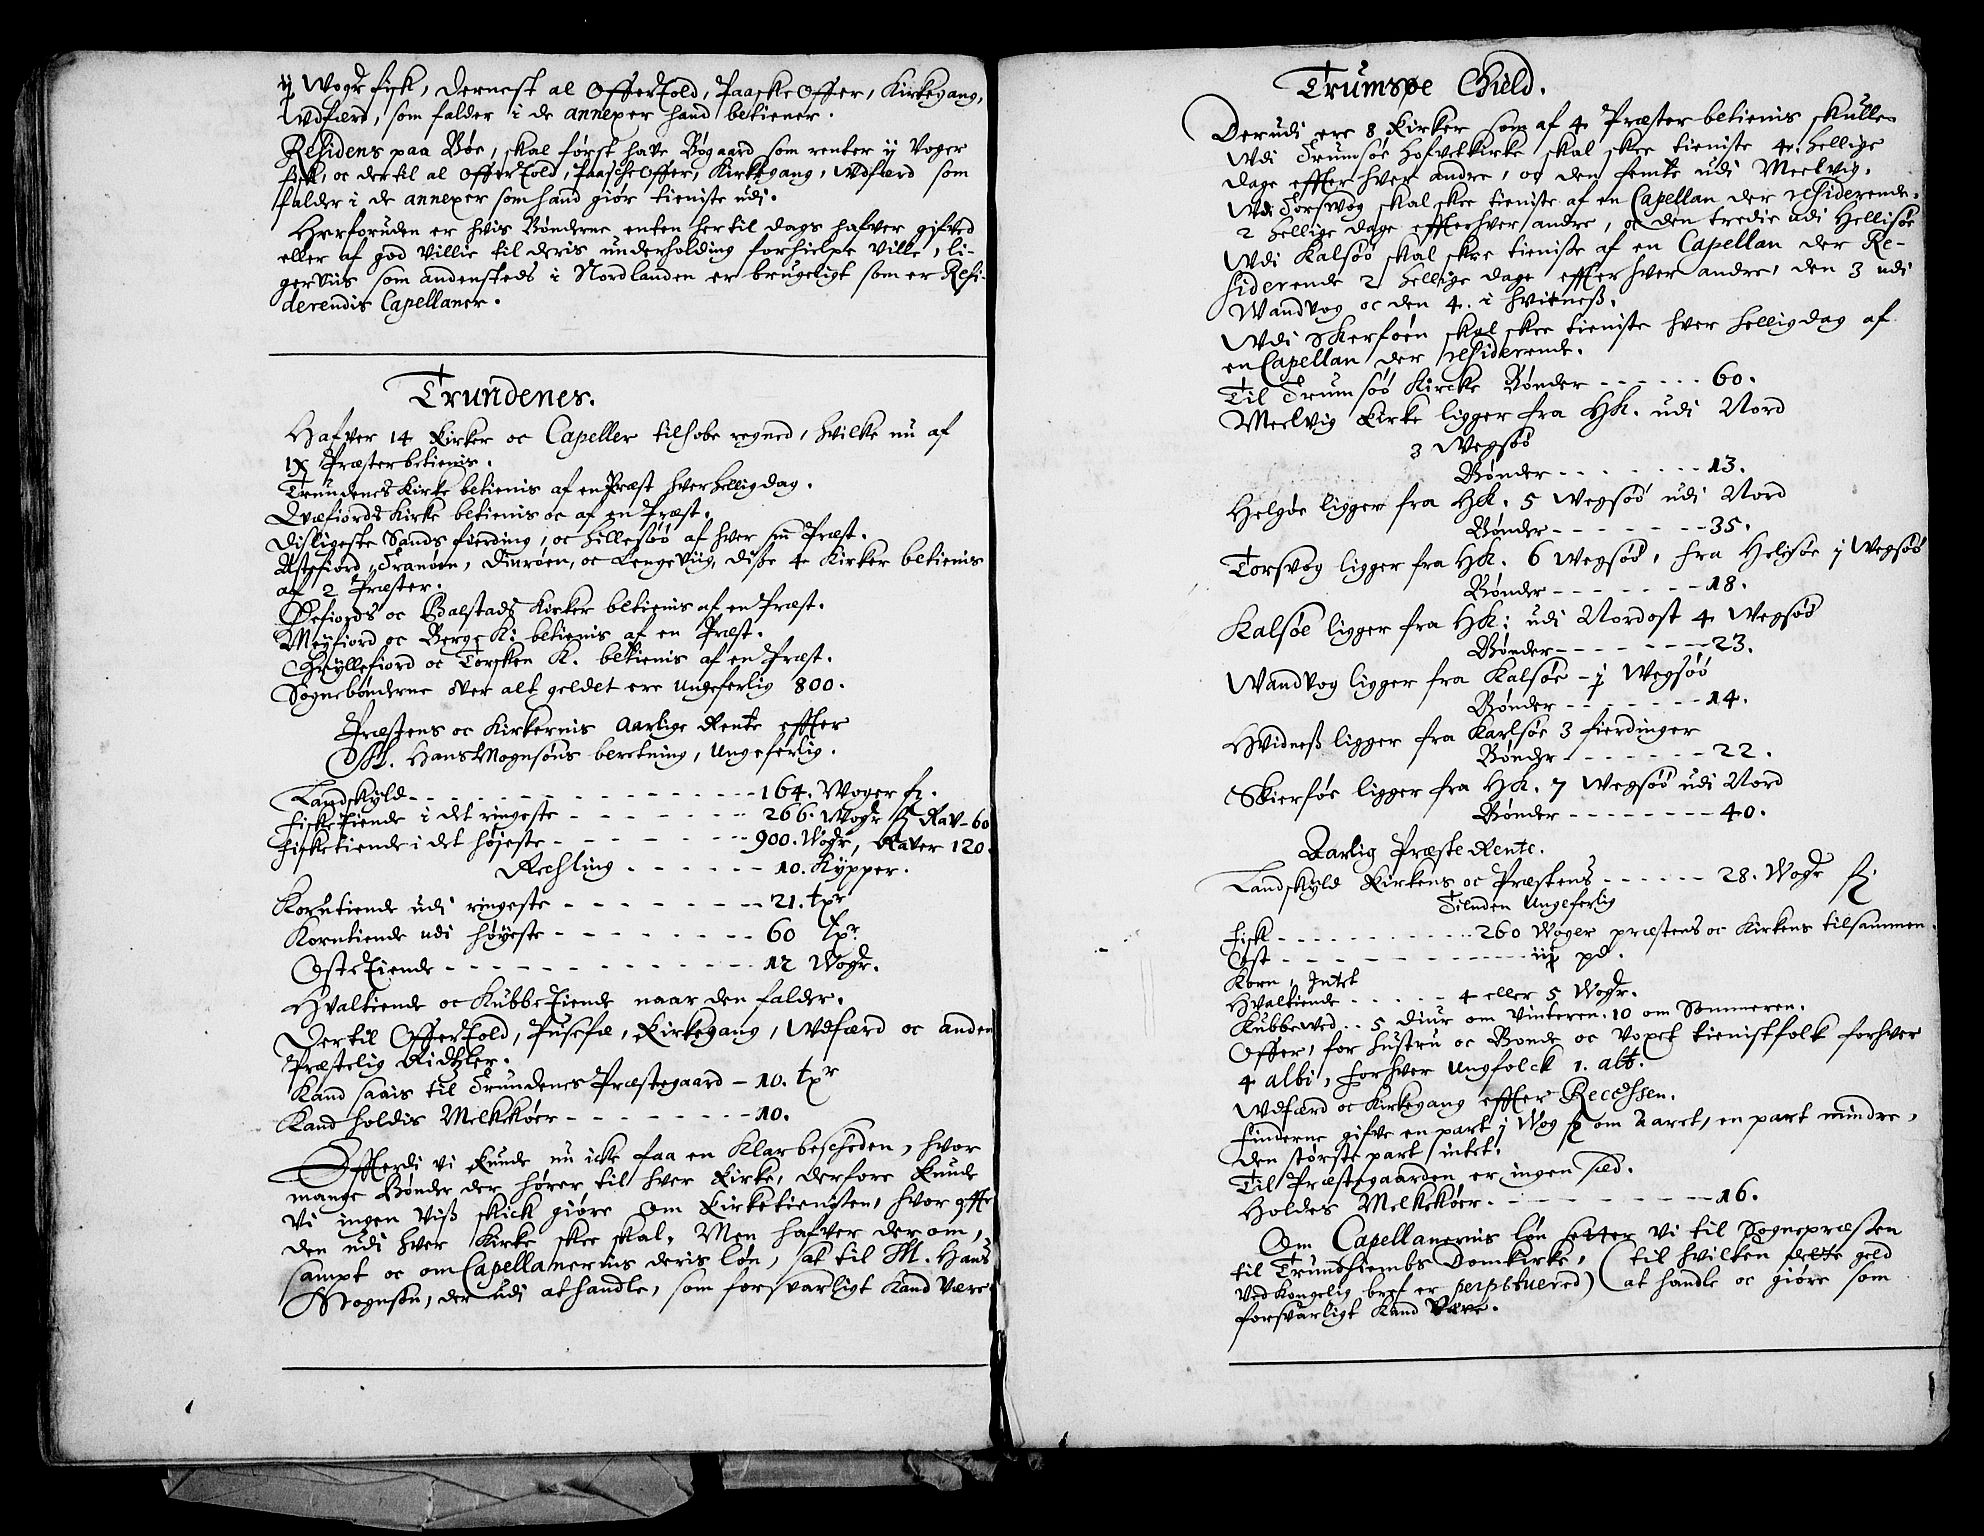 ij Wogr fisk, dernest al Offertold, Paaske Offer, Kirkegang,
Wdfærd, som falder i de annexer hand betiener.
Residens paa Bøe, skal først have Bøgaard som renter ij Voger
fisk, oc dertil al Offertold, Paasche Offer, Kirkegang, Wdfærd som
falder i de annexer som hand giør tieniste udi.
Herforuden er hvis Bønderne enten her til dags hafver gifved
eller af god villie til deris underholding forhielpe ville, li-
gerviis som andensteds i Nordlanden er brugeligt som er Resi-
derendis Capellaner.
Trundenes.
Hafver 14 Kirker oc Capeller tilhobe regned, hvilke nu af
ix Præster betienis.
Trundenes Kirke betienis af en Præst hver hellig dag.
Qvæfiords Kirke betienis oc af en Præst.
Disligeste Sands fierding, oc hillesøø af hver sin Præst.
Astefiord, Tranøen, Diurøen, oc Lengeviig, disse 4 Kirker betienis
af 2 Præster.
Øefiords oc Balstads Kirker betienis af en Præst.
Meyfiord oc Bergs K: betienis af en Præst.
Gryllefiord oc Torsken K. betienis af en Præst.
Sognebønderne over alt geldet ere ungeferlig 800.
Præstens oc Kirkernis Aarlige Rente effter
M. Hans Mognsøns beretning, ungeferlig.
Landskyld - - - - 164. Woger f.
Fiske Tiende i det ringeste - - - - 266. Wogr f Rav - 60
Fisketiende i det højeste - - - - 900. Wogr, Raver 120.
Rechling - - - - 10. Kypper.
Korntiende udi ringeste - - - - 21. tpr
Korntiende udi høyeste - - - - 60 tpr
Oste Tiende - - - - 12 Wogr.
Hvaltiende oc Kubbe Tiende naar den falder.
Dertil Offertold, Pusefæ, Kirkegang, Wdfærd oc anden
Præstelig Ridtzler.
Kand saais til Trundenes Præstegaard - 10. tpr
Kand holdis Melkkøer - - - - 10.
Effterdi vi kunde nu icke faa en klar bescheden, hvor
mange Bønder der hører til hver Kirke, derfore kunde
vi ingen viß skick giøre om Kirketienisten, hvor offte
den udi hver Kirke skee skal, Men hafver der om,
sampt oc om Capellanernis deris løn, sat til M. Hans
Mognsøn, der udi at handle, som forsvarligt Kand være.
Trumsøe Gield.
Derudi ere 8 Kirker som af 4 Præster betienis skulle
Wdi Trumsøe Hofvetkirke skal skee tieniste 4. hellige
dage effter hver andre, og den femte udi Meelvig.
Wdi Torsvog skal skee tieniste af en Capellan der residerende.
2 hellige dage effter hver andre, oc den tredie udi Hellisøe
Wdi Kalsøø skal skee tieniste af en Capellan der Re-
siderende 2 hellige dage effter hver andre, den 3 udi
Wandvog oc den 4. i Hvitneß.
Wdi Skerføen skal skee tieniste hver hellig dag af
en Capellan der residerende.
Til Trumsøø Kircke Bønder - - - - 60.
Meelvig Kirke ligger fra HK. udi Nord
3 Wegsøø
Bønder - - - - 13.
Helgøe ligger fra HK. 5 Wegsøø udi Nord
Bønder - - - - 35.
Torsvog ligger fra HK. 6 Wegsøø, fra Helisøe j Wegsøø
Bønder - - - - 18.
Kalsøe ligger fra HK: udi Nordost 4 Wegsøø
Bønder - - - - 23.
Wandvog ligger fra Kalsøe - j Wegsøø
Bønder - - - - 14.
Hvidneß ligger fra Karlsøe 3 fierdinger
Bønder - - - - 22.
Skierføe ligger fra HK. 7 Wegsøø udi Nord
Bønder - - - - 40.
Aarlig Præste Rente.
Landskyld Kirkens oc Præstens - - - - 28. Wogr f
Tienden Ungeferlig
Fisk - - - - 260 Woger præstens oc Kirkens tilsammen.
Ost - - - - iij pd.
Korn, Intet
Hvaltiende - - - - 4 eller 5 Wogr.
Kubbeved - - 5 Diur om Vinteren. 10 om Sommeren.
Offer, for Hustru oc Bonde oc Voxet tienistfolk forhver
4 albi, forhver Ungfolck 1. alb.
Wdfærd oc Kirkegang effter Recessen.
Finderne gifve en part j Wog f om Aaret, en part mindre,
den største part intet.
Til Præstegaarden er ingen sæd.
Holdes Melkkøer - - - - 16.
Om Capellanernis løn setter vi til Sognepræsten
til Trundhiembs Domkirke, (til hvilken dette geld
ved Kongelig bref er perpetuered) at handle oc giøre som
forsvarligt Kand være.